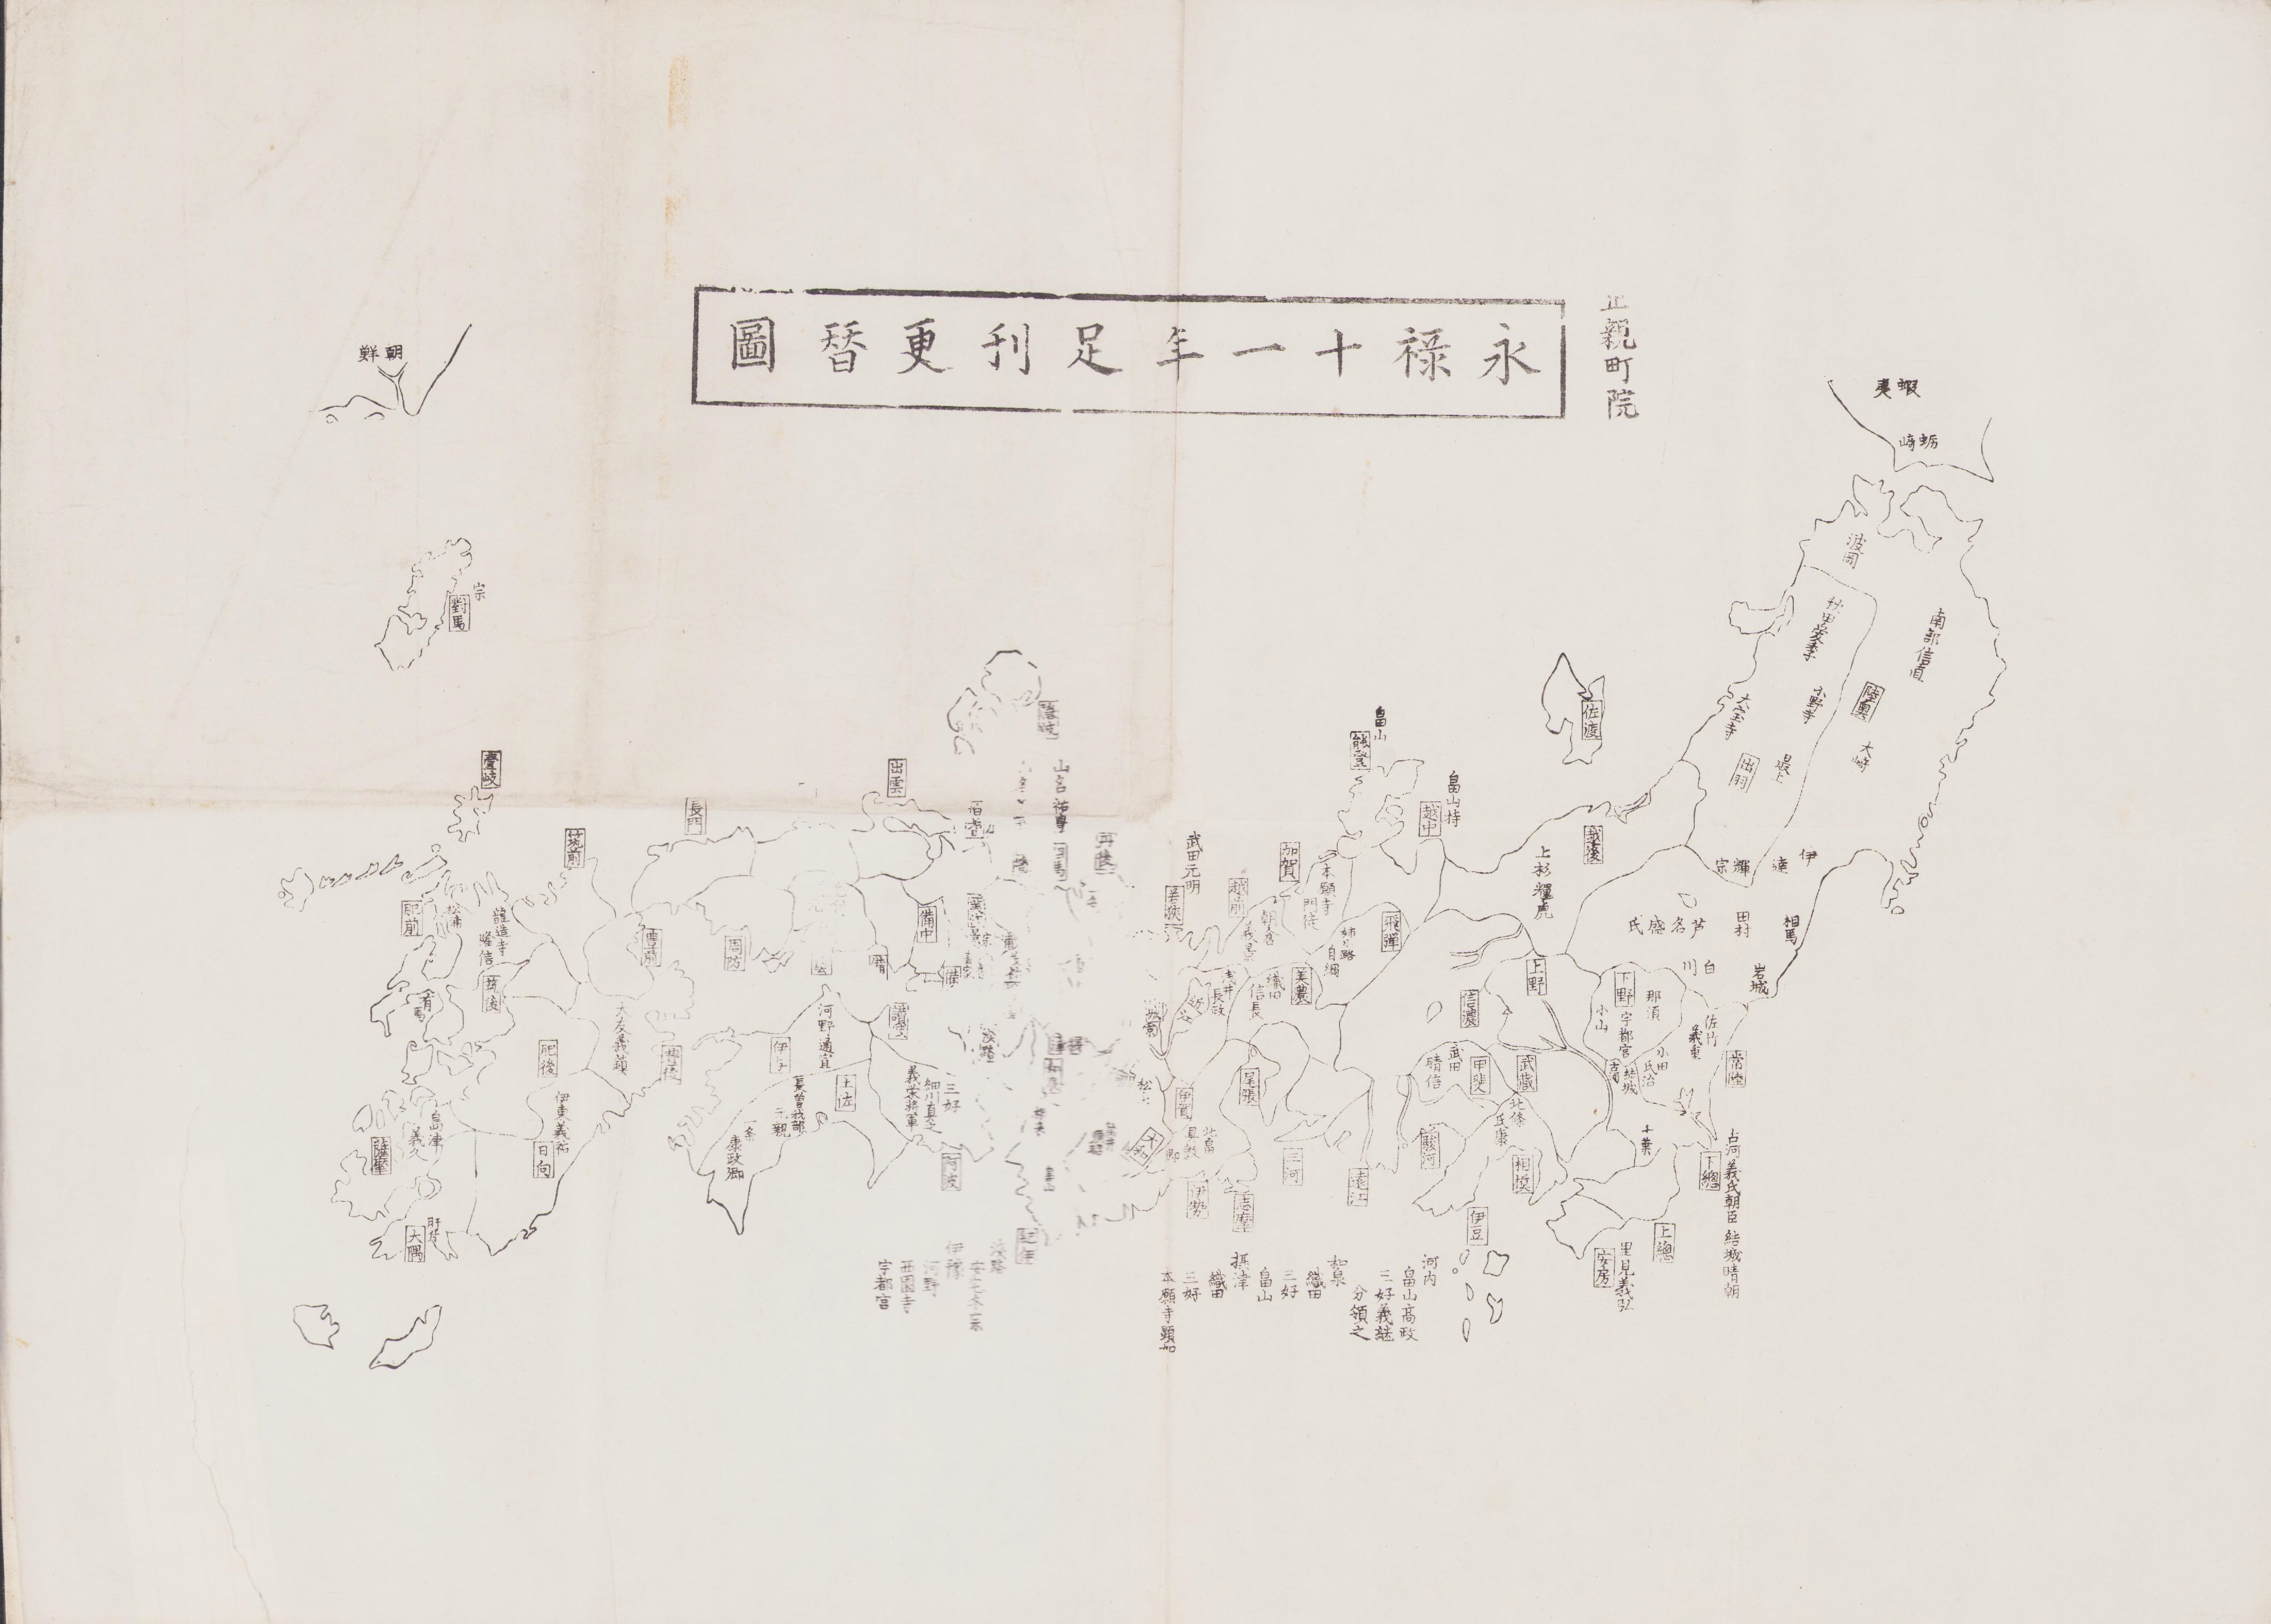 正親町院
永禄十一年足利更朁圖
蝦夷
蛎崎
波岡
南部信直
秋田愛季
小野寺
大宝寺
陸奥
大崎
最上
出羽
佐渡
伊達輝宗
越後
上杉輝虎
芦名盛氏
田村
相馬
白川
岩城
畠山
能登
畠山持
越中
加賀
本願寺
門徒
飛彈
姉小路
自綱
越前
朝倉
義景
武田元明
若狭
上野
下野
那須
宇都宮
小山
佐竹
義重
小田
氏治
結城
常陸
信濃
武田
晴信
甲斐
武蔵
北條
氏康
千葉
下總
古河義氏朝臣
結城晴朝
上總
里見義弘
安房
相模
駿河
伊豆
遠江
三河
尾張
美濃
織田
信長
浅井
長政
伊賀
北畠
具教
伊勢
志摩
河内
畠山高政
三好義継
分領之
和泉
織田
三好
畠山
摂津
織田
三好
本願寺顕如
山名祐豊
出雲
備中
長門
周防
讃岐
淡路
三好
細川真之
義栄将軍
阿波
河野通宣
土佐
長曽我部
元親
一条
康政卿
伊豫
河野
西園寺
宇都宮
朝鮮
宗
對馬
壹岐
筑前
豊前
肥前
松浦
龍造寺
隆信
筑後
有馬
大友義鎮
豊後
肥後
伊東義祐
日向
島津
義久
薩摩
肝付
大隅